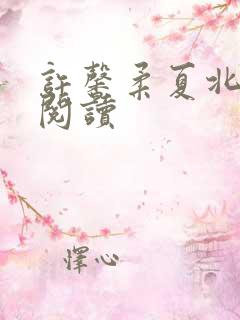 許馨柔夏北
閱讀
懌心